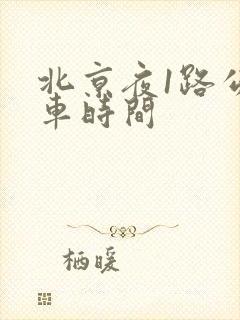 北京夜1路
車時間
栖暖